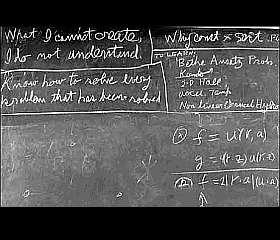 What I cannot create,
I do not understand.
Know how to solve every
problem that has been solved
Why const × sort . PO
TO LEARN:
Bethe Ansatz Probs.
Kondo
2-D Hall
accel. Temp
Non linear Classical Hydro
f = u(r, a)
g = 4(r z) u(r, z)
f = 2|r, a|(u, a)